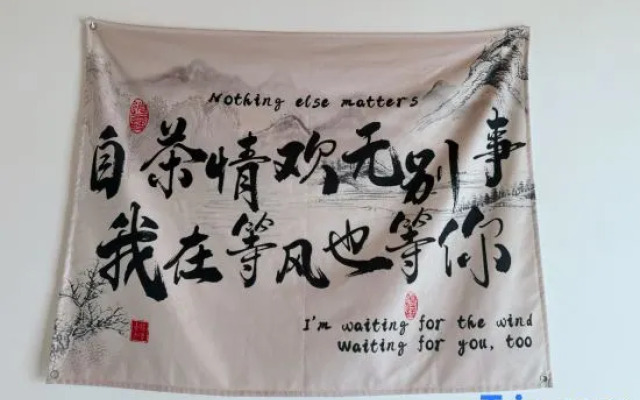 Nothing else matters
自茶情欢无别事
我在等风也等你
I'm waiting for the wind
waiting for you, too